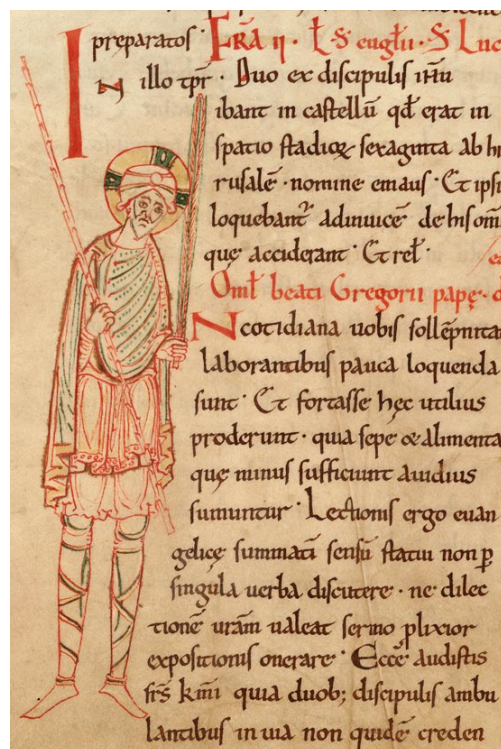 preparatos· Fr̄a ii · L̄ s̄ eugl̄ii · S Luc
In illo tp̄r · Duo ex discipulis ih̄u
ibant in castellū qd̄ erat in
spatio stadioꝝ sexaginta ab hi
rusalē · nomine emaus · Et ipsi
loquebant᷑ adinuicē de his om̄
que acciderant · Et rel̄ ·
Oml̄ beati Gregorii papę ·
N cotidiana uobis sollēpnita
laborantibus pauca loquenda
sunt · Et fortasse hęc utilius
proderunt · quia sepe & alimenta
quę minus sufficiunt auidius
sumuntur · Lectionis ergo euan
gelicę summatī sensū statui non ꝑ
singula uerba discutere · ne dilec
tionē urām ualeat sermo plixior
expositionis onerare · Ecce audistis
fr̄s km̄i quia duob; discipulis ambu
lantibus in uia non quidē creden